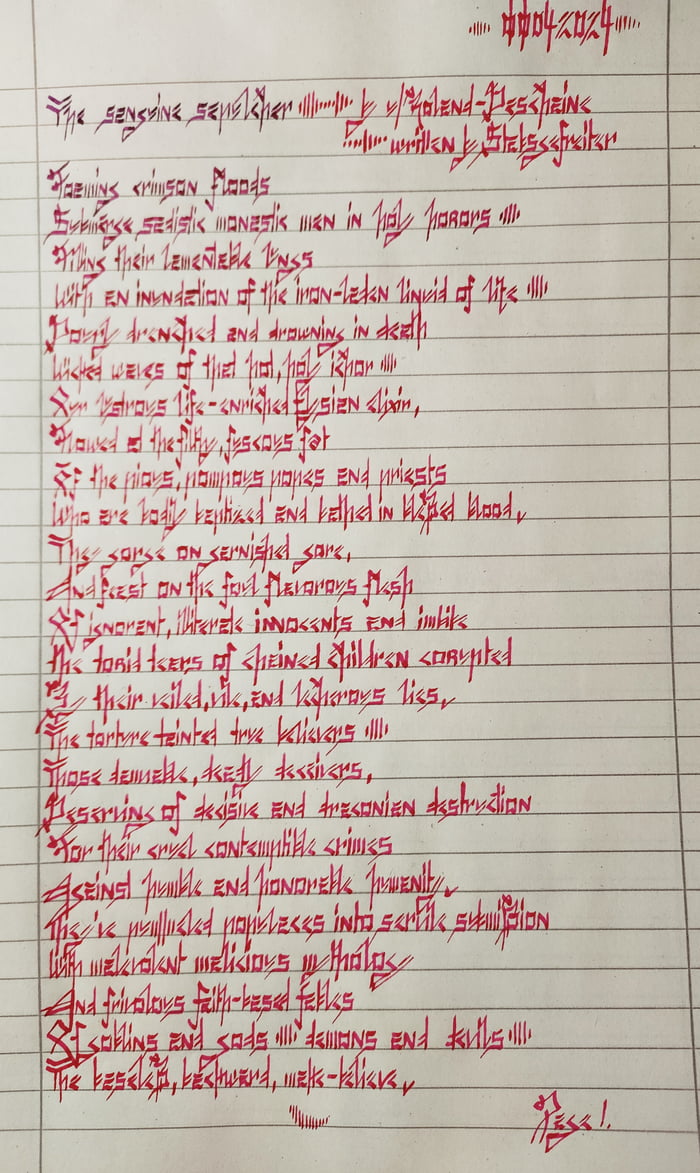 The sanguine sepulcher by u/Roland-Deschaine
written by Stabsgefreiter
Foaming crimson floods
Submerge sadistic monastic men in holy horors
Filling their lamentable lungs
With an inundation of the iron-laden liquid of life
Dourly drenched and drowning in death
Wicked waves of that hot, holy ichor
Our lustrous life-enriched Elysian elixir,
the filthy, fuscous fat
Of the pious, pompous popes and priests
Who are bodily baptized and bathed in blood,
They gorge on garnished gore,
And feast on the foul flavorous flesh
Of ignorant, illiterate innocents and imbibe
The torid tears of chained children corupted
By their veiled, vile, and lecherous lies,
The torture tainted true believers
Those damnable, deadly deceivers,
Deserving of decisive and draconian destruction
For their cruel contemptible crimes
Against humble and honorable humanity,
They've populaces into servile submission
With malevolent malicious mythology
And frivolous faith-based fables
Of goblins and gods demons and devils
The baseless, backward, make-believe,
Page 1.